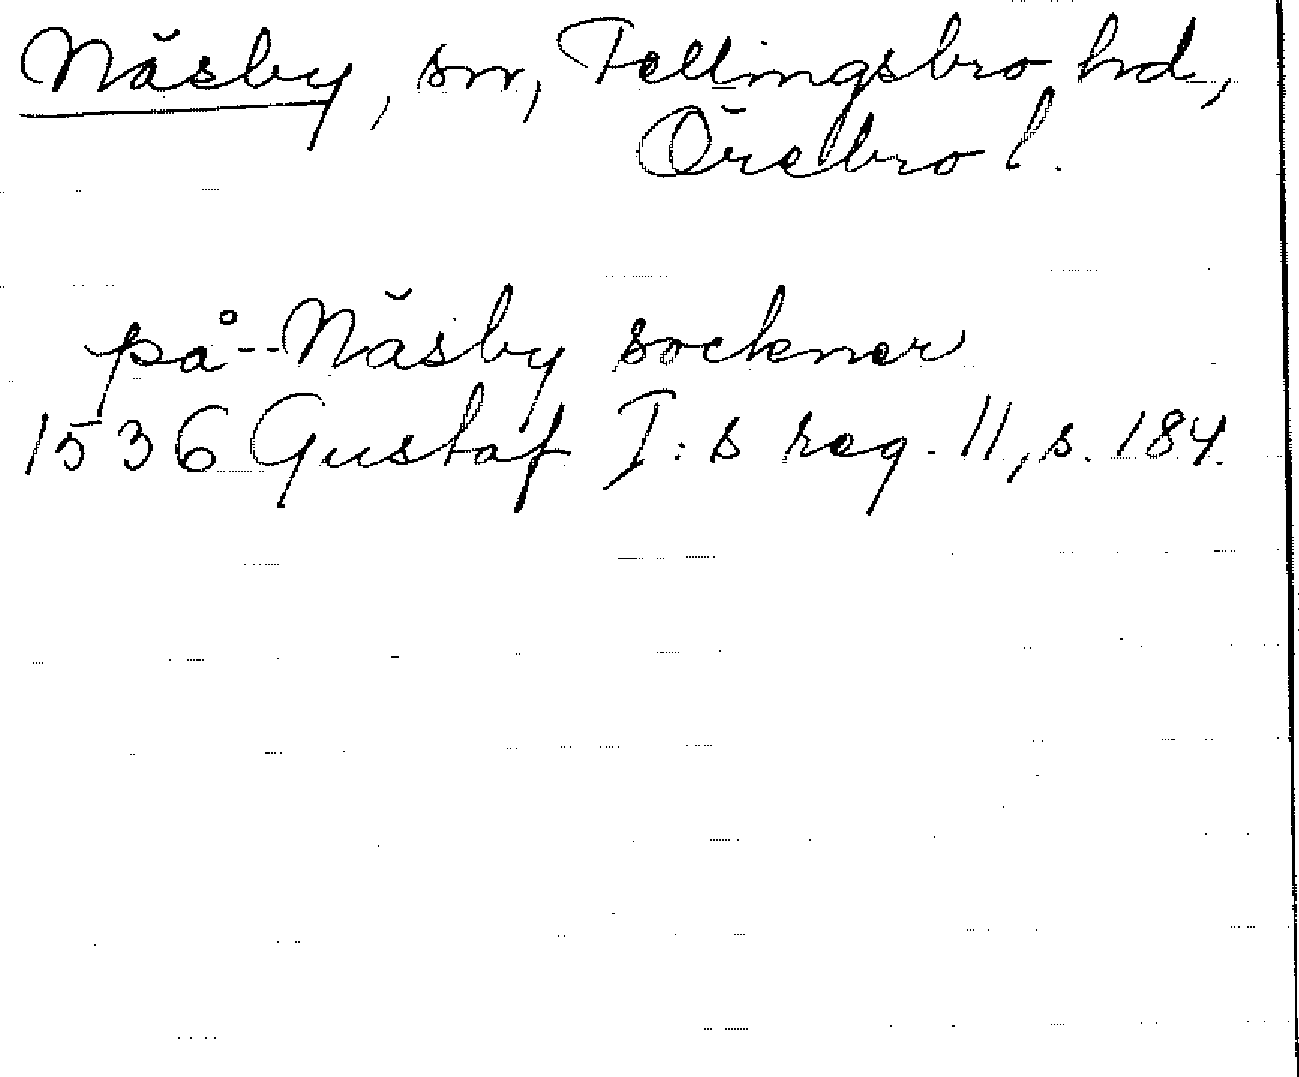 Näsby, sn, Fellingsbro hd.,
Örebro l.
på -- Näsby sockner
1536 Gustaf I:s reg. 11, s. 184.